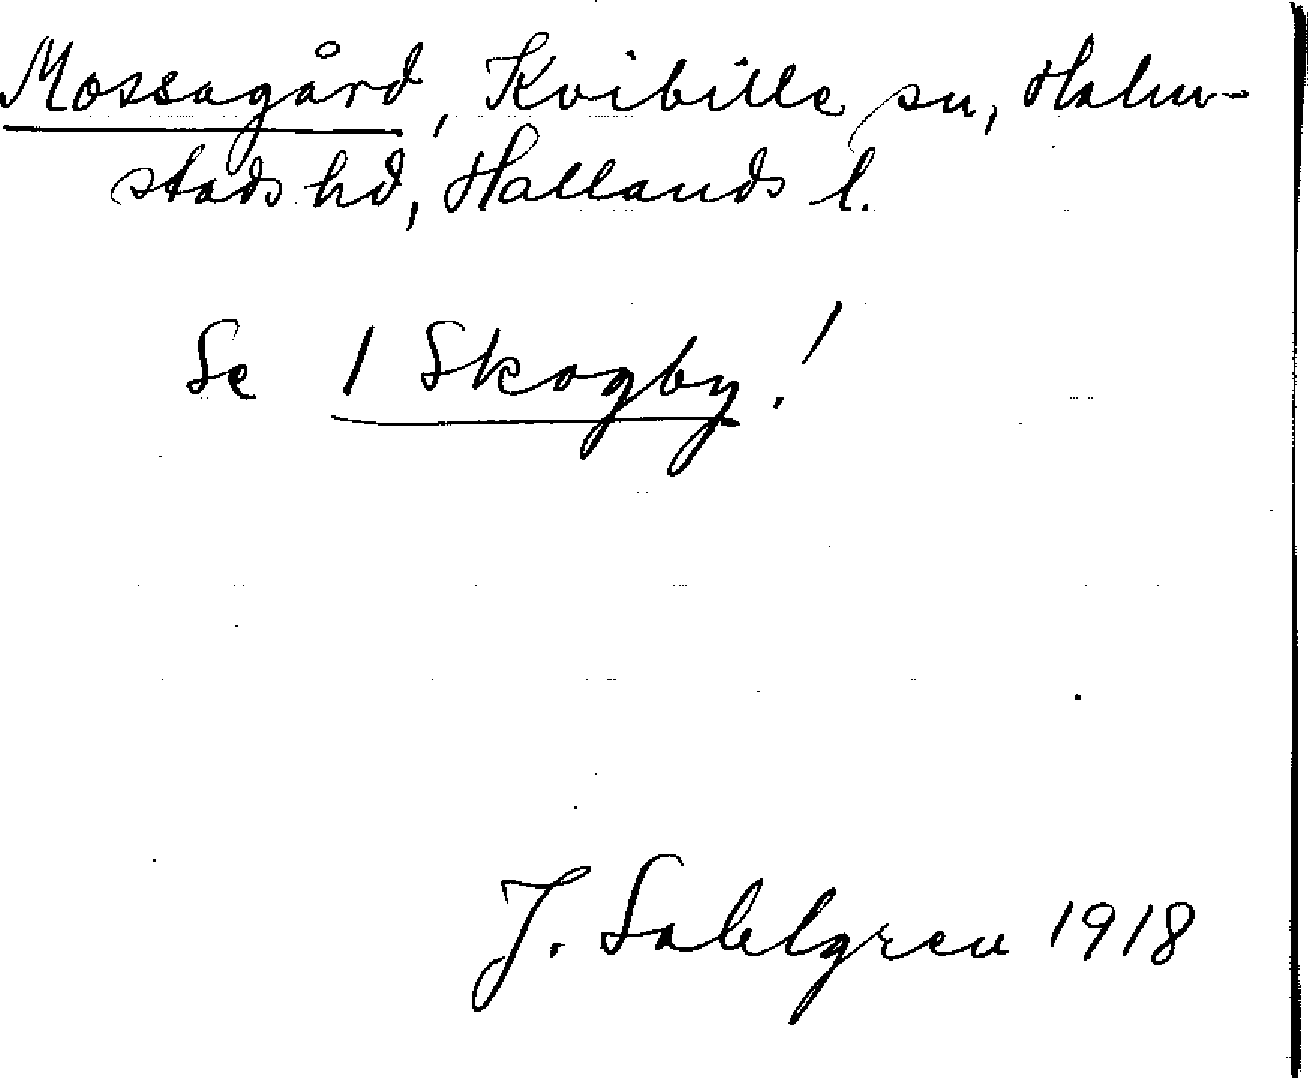 Mossagård, Kvibille sn, Halm-
stads hd, Hallands l.
Se 1 Skogby!
J. Sahlgren 1918